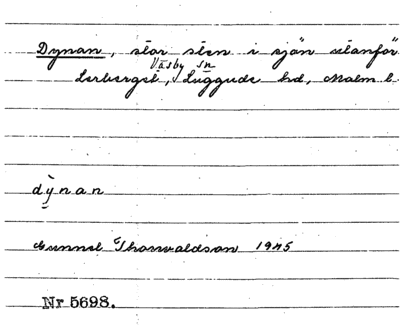 Dynan, stor sten i sjön utanför
Väsby sn
Lerberget, Luggude hd, Malm l.
dỳnan
Gunnel Thorvaldson 1945
Nr 5698.